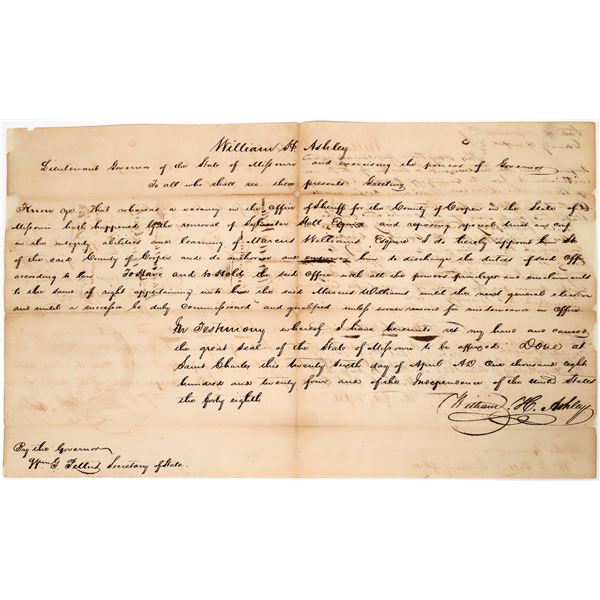 William H. Ashley
Lieutenant Governor of the State of Missouri and exercising the powers of Governor
To all who shall see these presents Greeting
Know ye That whereas a vacancy in the Office of Sheriff for the County of Cooper in the State of
Missouri hath happened by the removal of Sylvester Hall Esqire and reposing special trust and conf
in the integrity abilities and learning of Marcus Williams Esqire I do hereby appoint him
of the said County of Cooper and do authorise and empower him to discharge the duties of said Offi
according to law To Have and to Hold the said Office with all the powers privileges and emoluments
to the same of right appertaining unto him the said Marcus Williams until the next general election
and until a successor be duly Commissioned and qualified unless sooner removed for misdemeanor in Office
In Testimony whereof I have hereunto set my hand and caused
the great Seal of the State of Missouri to be affixed. Done at
Saint Charles this twenty sixth day of April AD One thousand eight
hundred and twenty four and of the Independence of the United States
the forty eighth
William H. Ashley
By the Governor
Wm G. Pettus Secretary of State.